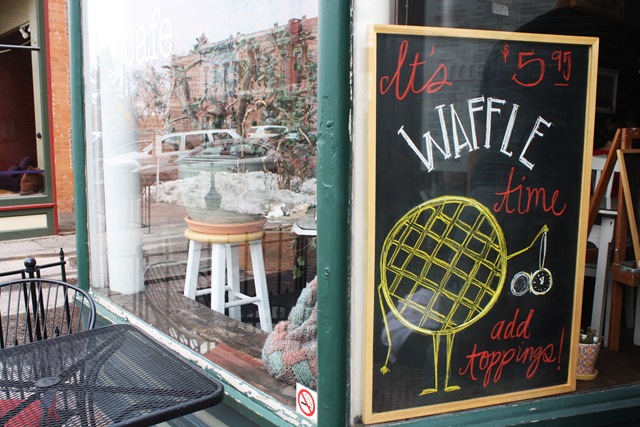 cafe
It's $5.95
WAFFLE
time
add
toppings!